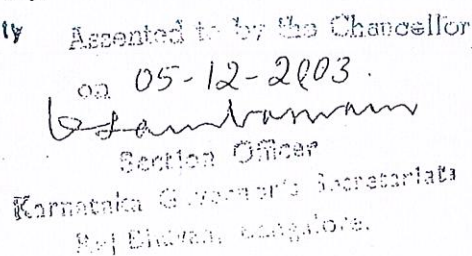 ty Assented to by the Chancellor
on 05-12-2003.
Section Officer
Karnataka Governor's Secretariat
Raj Bhavan, Bangalore.